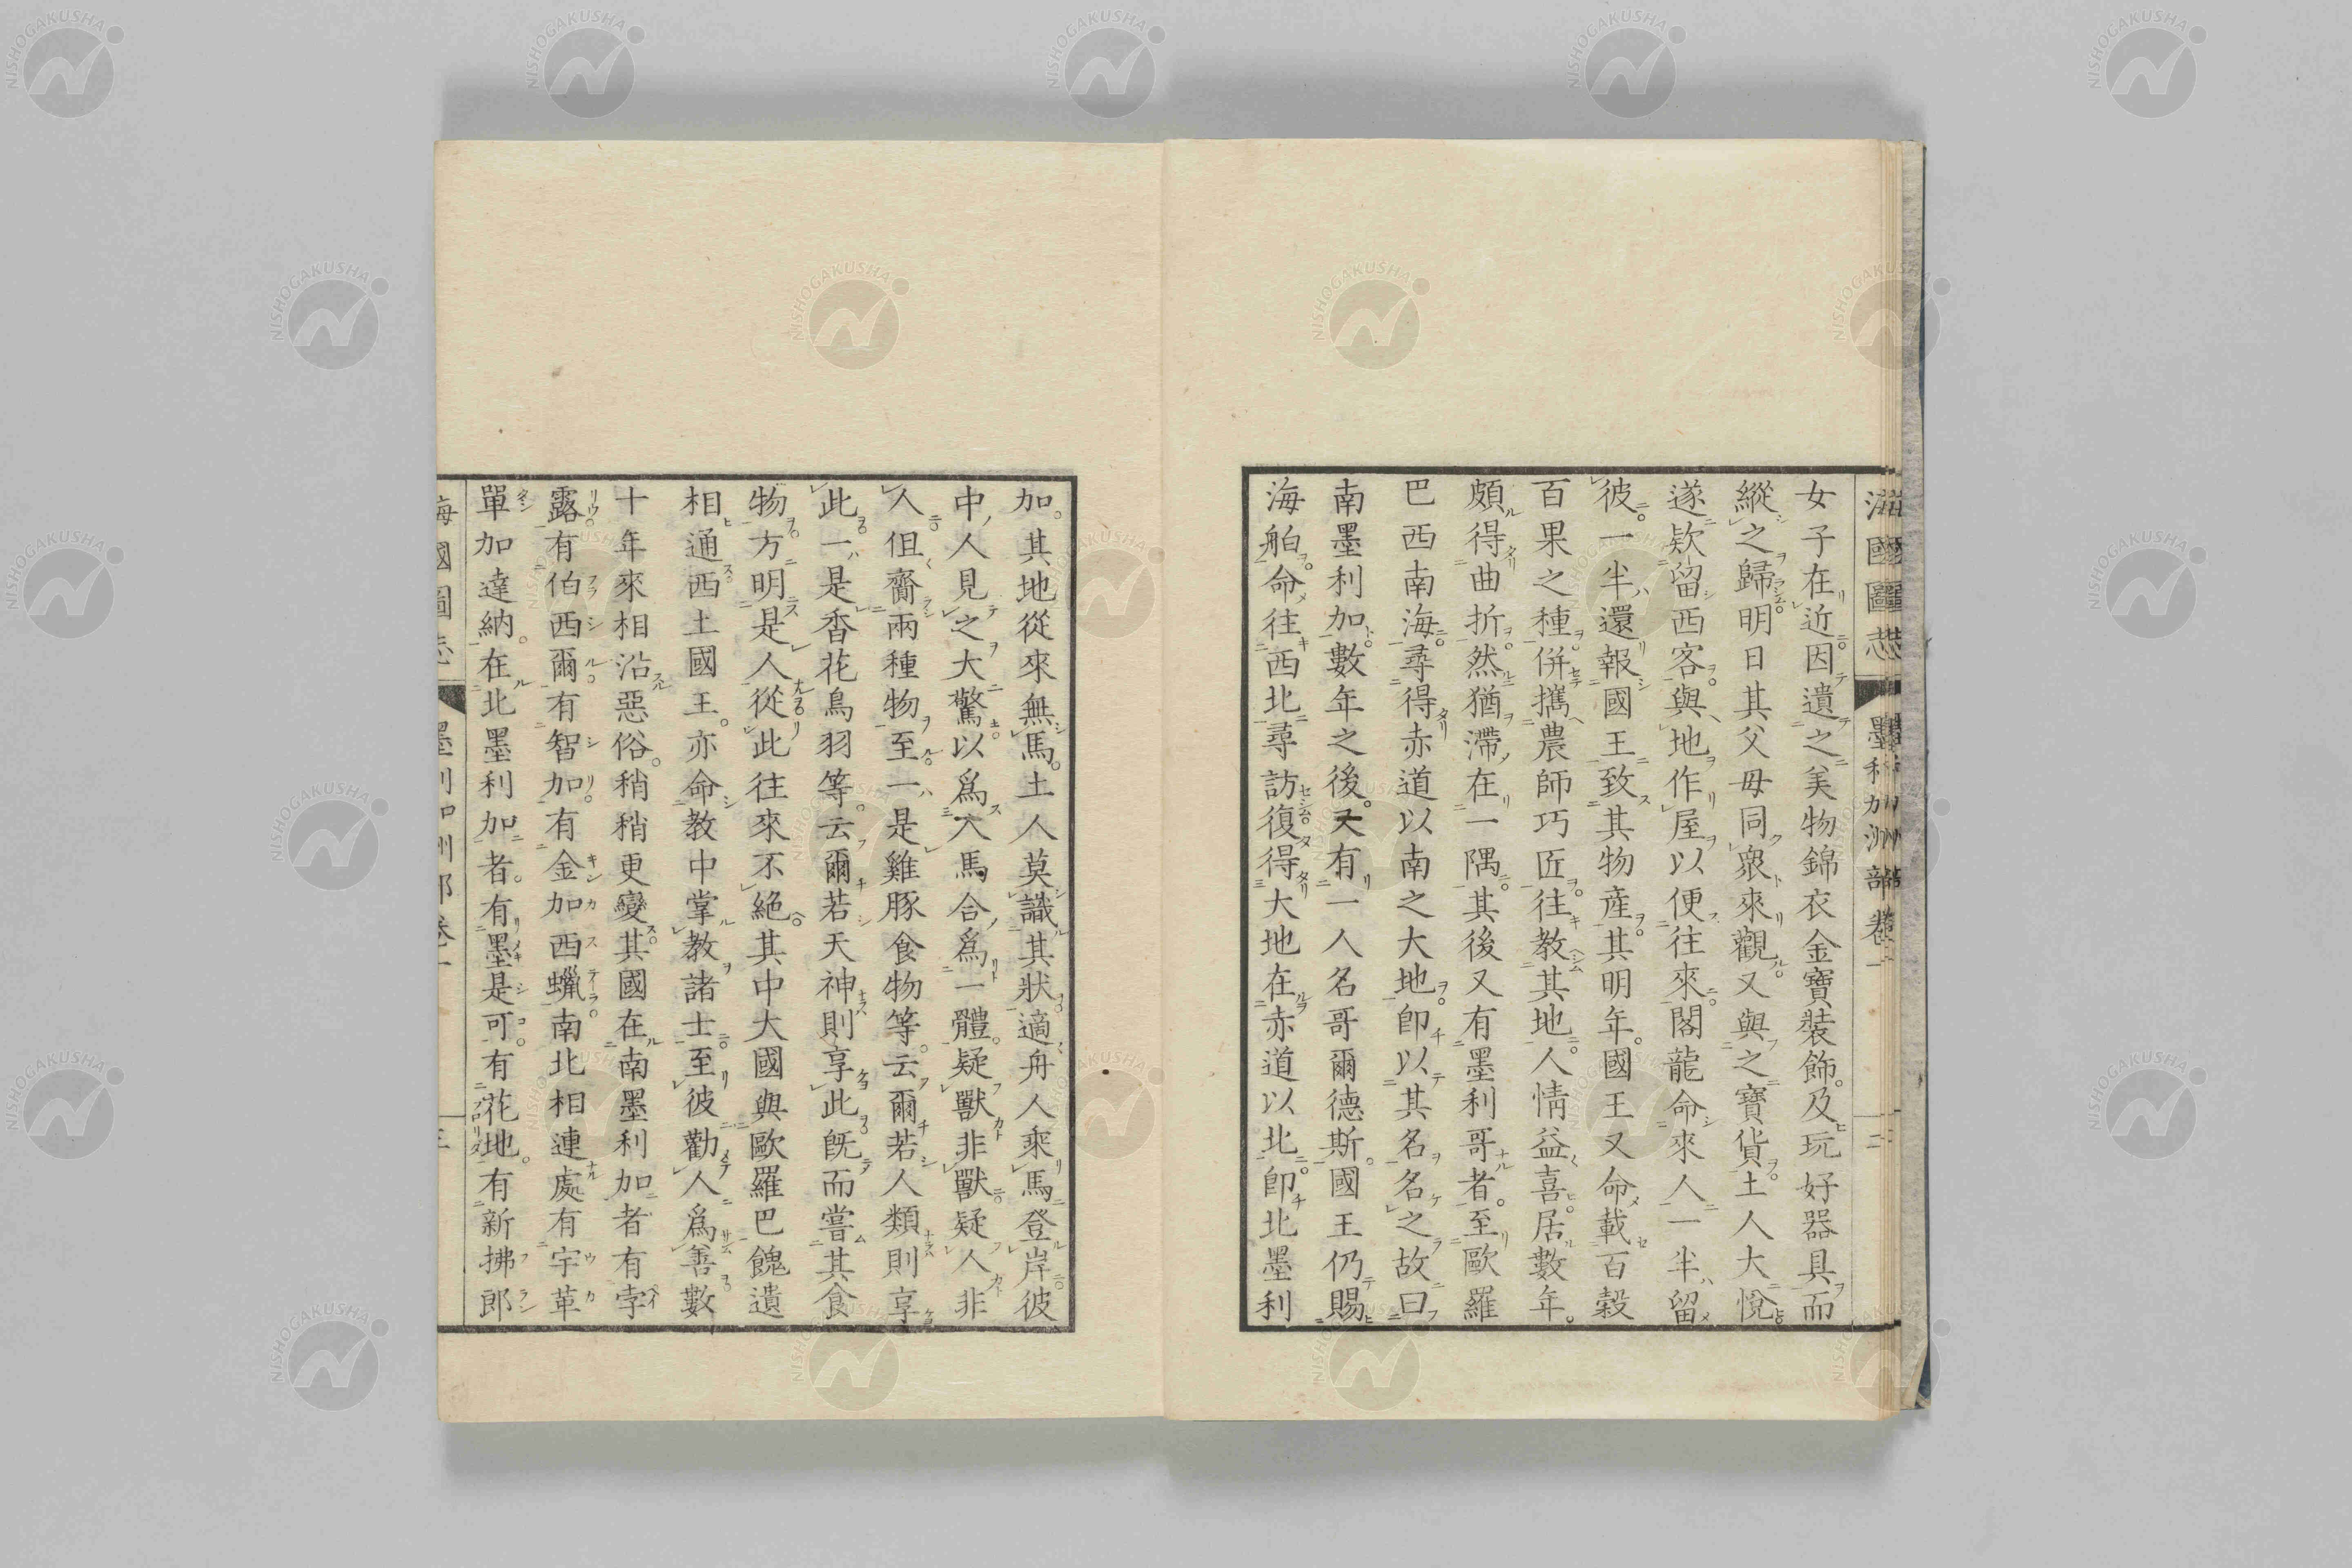 海國圖志 墨利加洲部卷一 二
女子在近因遺之美物錦衣金寶裝飾及玩好器具而
縱之歸明日其父母同衆來觀又與之寶貨土人大悅
遂欵留西客與地作屋以便往來閣龍命來人一半留
彼一半還報國王致其物産其明年國王又命載百穀
百果之種併攜農師巧匠往教其地人情益喜居數年
頗得曲折然猶滯在一隅其後又有墨利哥者至歐羅
巴西南海尋得赤道以南之大地卽以其名名之故曰
南墨利加數年之後又有一人名哥爾德斯國王仍賜
海舶命往西北尋訪復得大地在赤道以北卽北墨利
加其地從來無馬土人莫識其狀適舟人乘馬登岸彼
中人見之大驚以爲人馬合爲一體疑獸非獸疑人非
人但齎兩種物至一是雞豚食物等云爾若人類則享
此一是香花鳥羽等云爾若天神則享此旣而嘗其食
物方明是人從此往來不絶其中大國與歐羅巴餽遺
相通西土國王亦命教中掌教諸士至彼勸人爲善數
十年來相沿惡俗稍稍更變其國在南墨利加者有孛
露有伯西爾有智加有金加西蠟南北相連處有宇革
單加達納在北墨利加者有墨是可有花地有新拂郎
海國圖志 墨利加洲部卷一 三
NISHOGAKUSHA